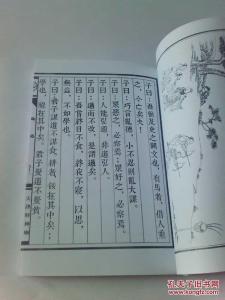 子曰：吾猶及史之闕文也，有馬者，借人乘
之，今亡矣夫！
子曰：巧言亂德，小不忍則亂大謀。
子曰：眾惡之，必察焉；眾好之，必察焉。
子曰：人能弘道，非道弘人。
子曰：過而不改，是謂過矣。
子曰：吾嘗終日不食，終夜不寢，以思，
無益，不如學也。
子曰：君子謀道不謀食，耕也，餒在其中矣；
學也，祿在其中矣。君子憂道不憂貧。